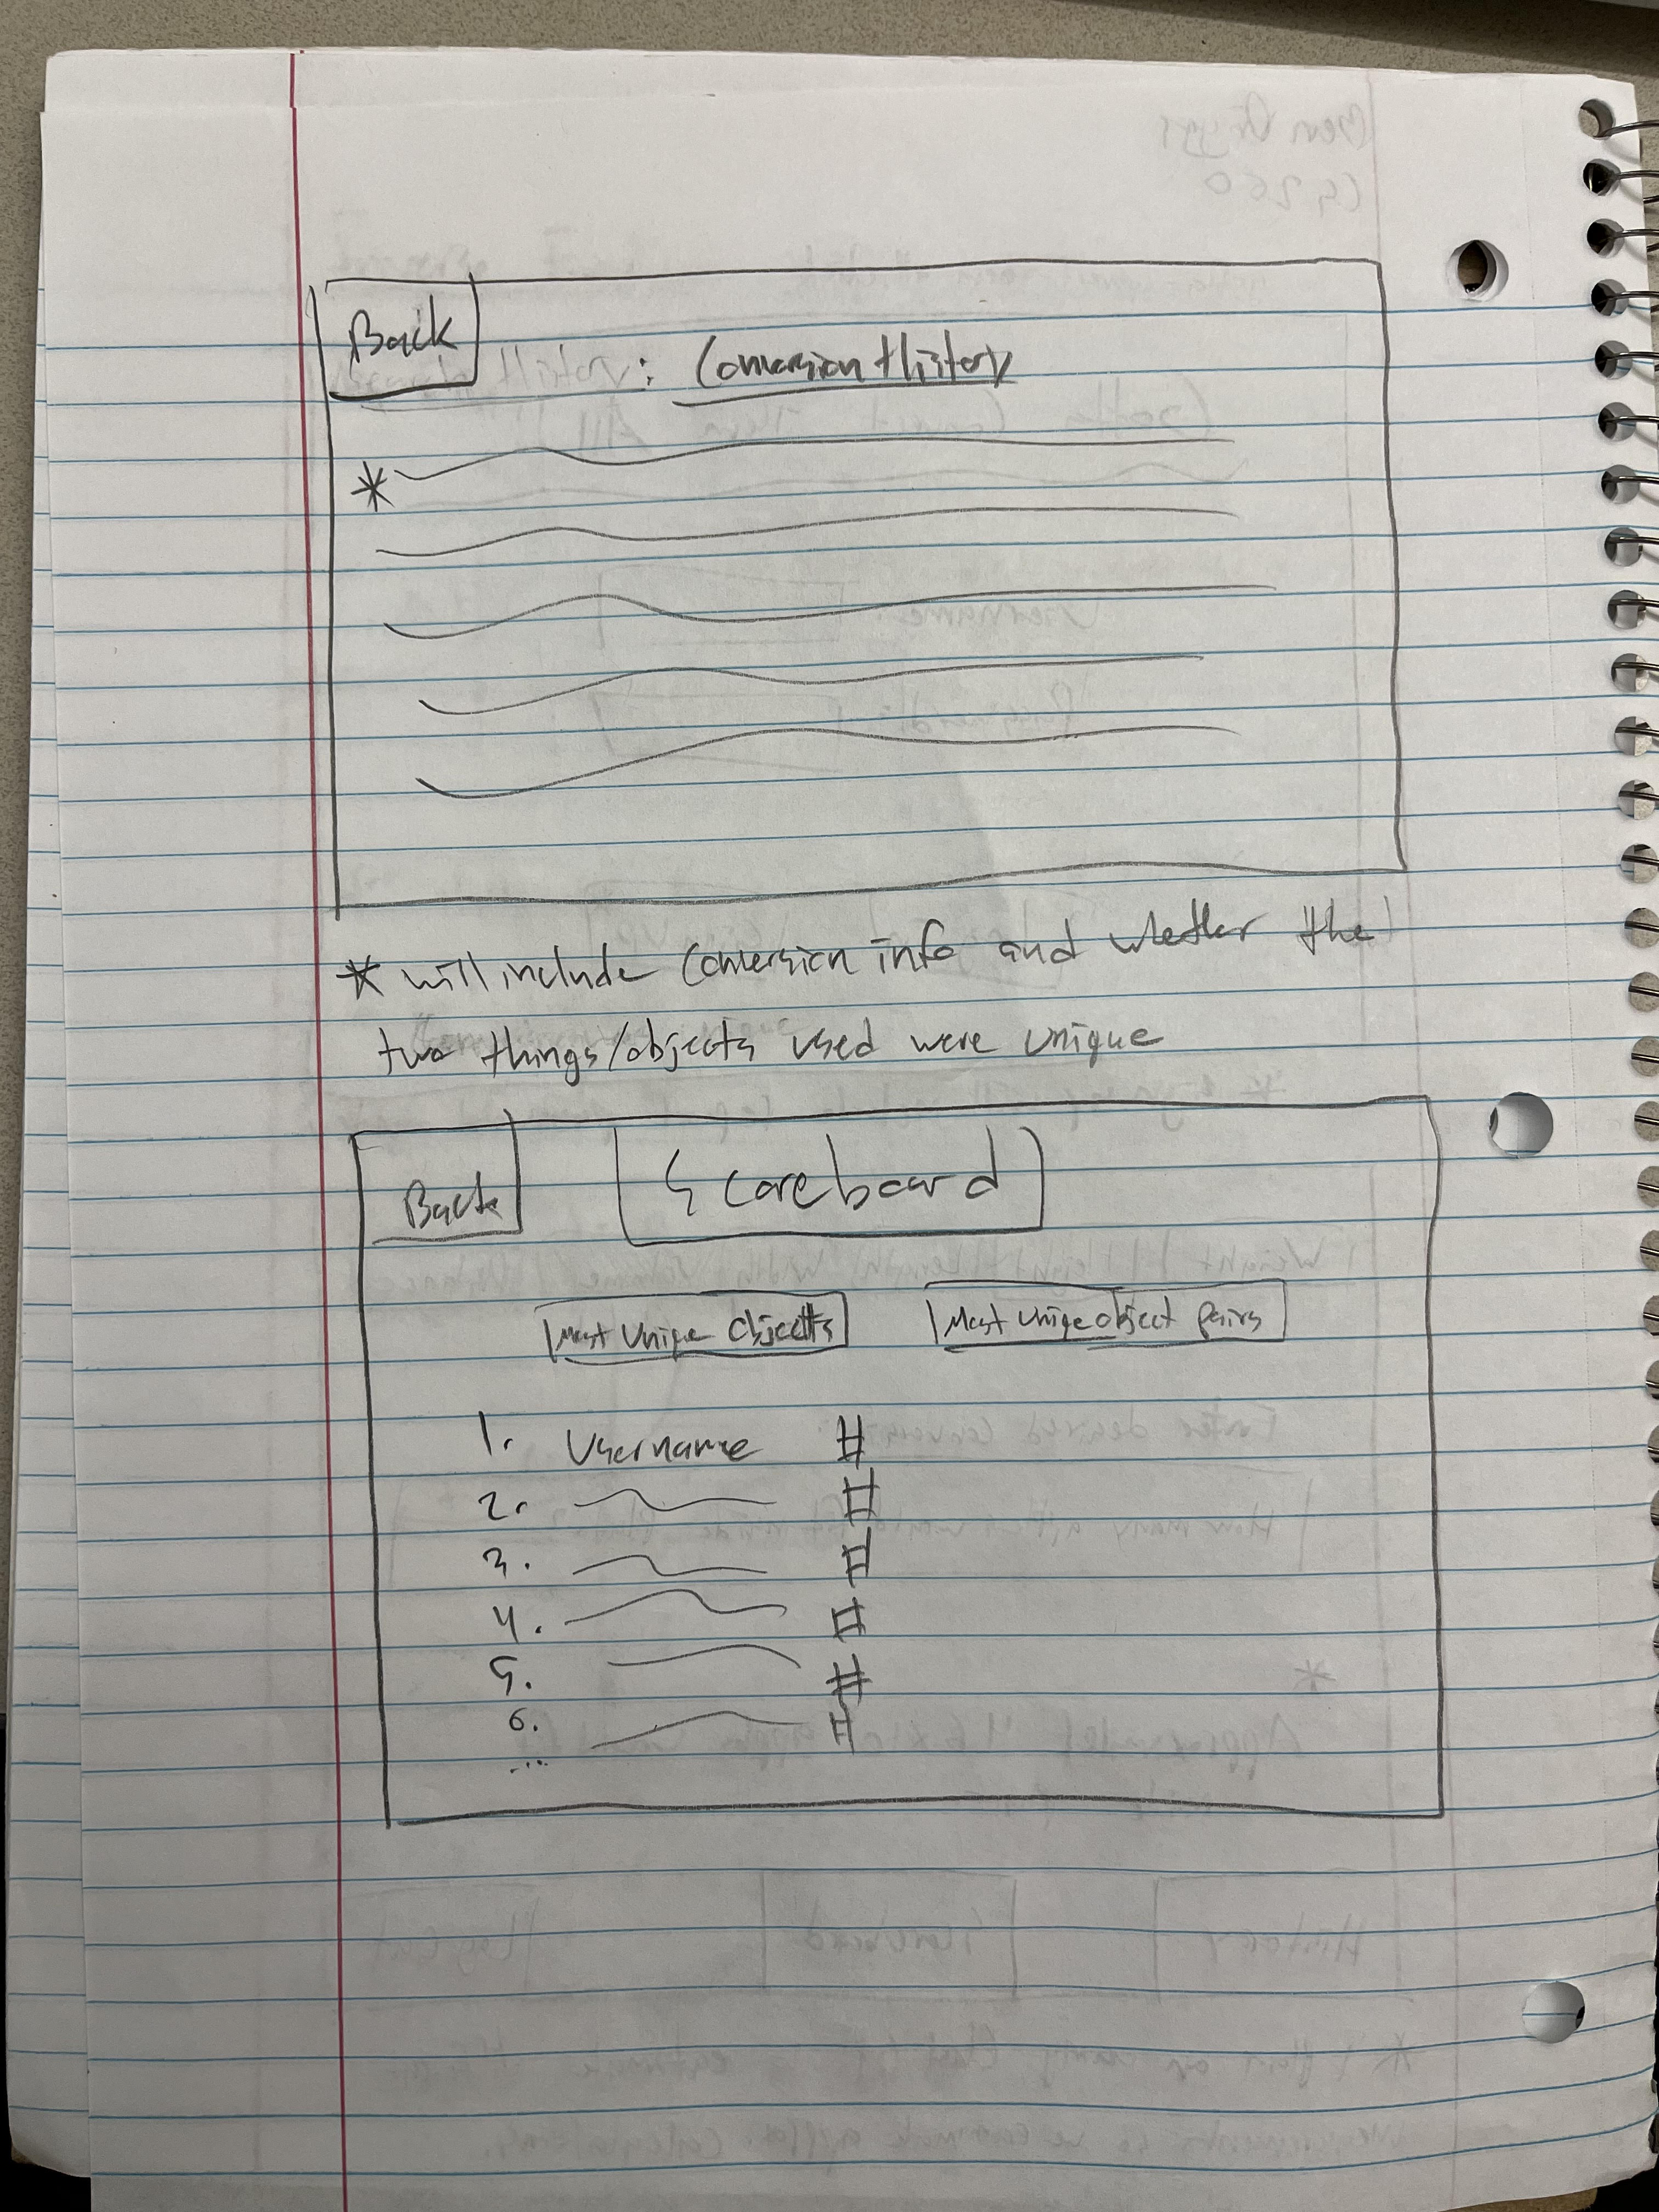 Back
Conversion History
*
* will include conversion info and whether the
two things/objects used were unique
Back
Scoreboard
Most Unique Objects
Most Unique object pairs
1. Username #
2. #
3. #
4. #
5. #
6. #
...